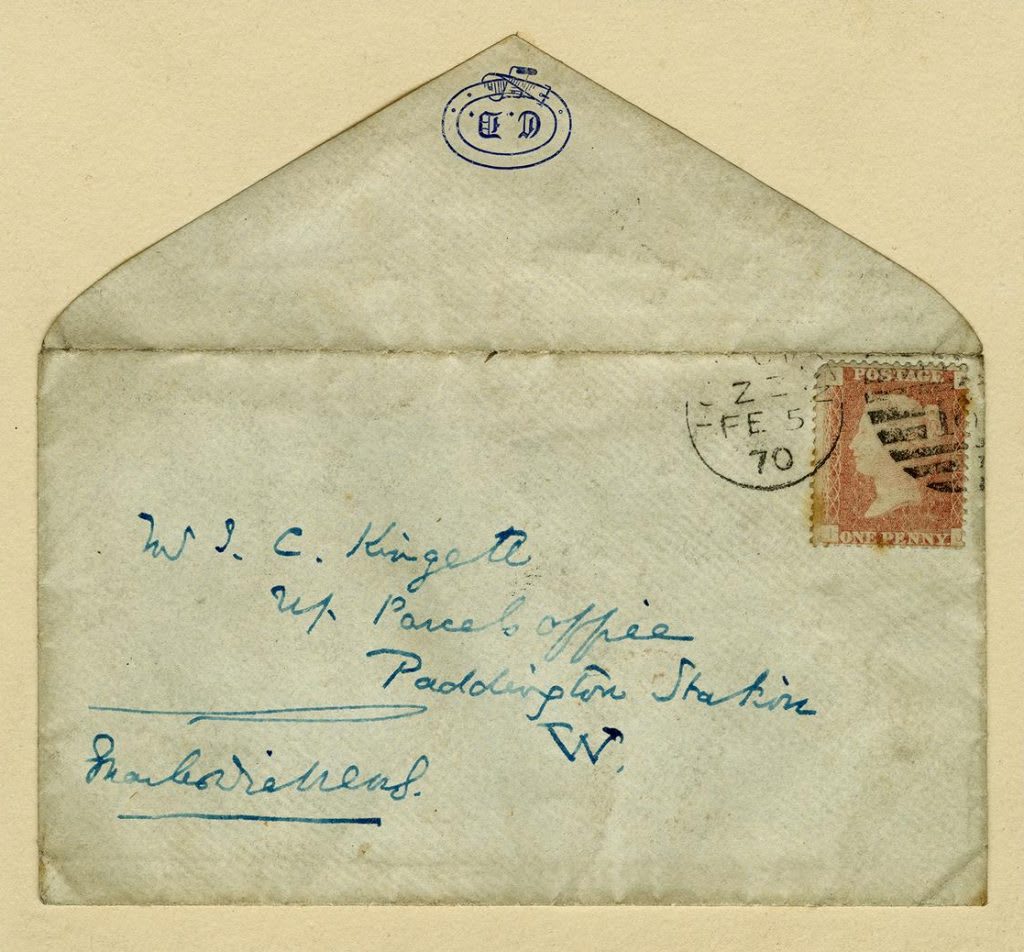 C. D.
Z
FE 5
70
POSTAGE
ONE PENNY
Mr J. C. Kingett
Up Parcels office
Paddington Station
W.
Charles Dickens.